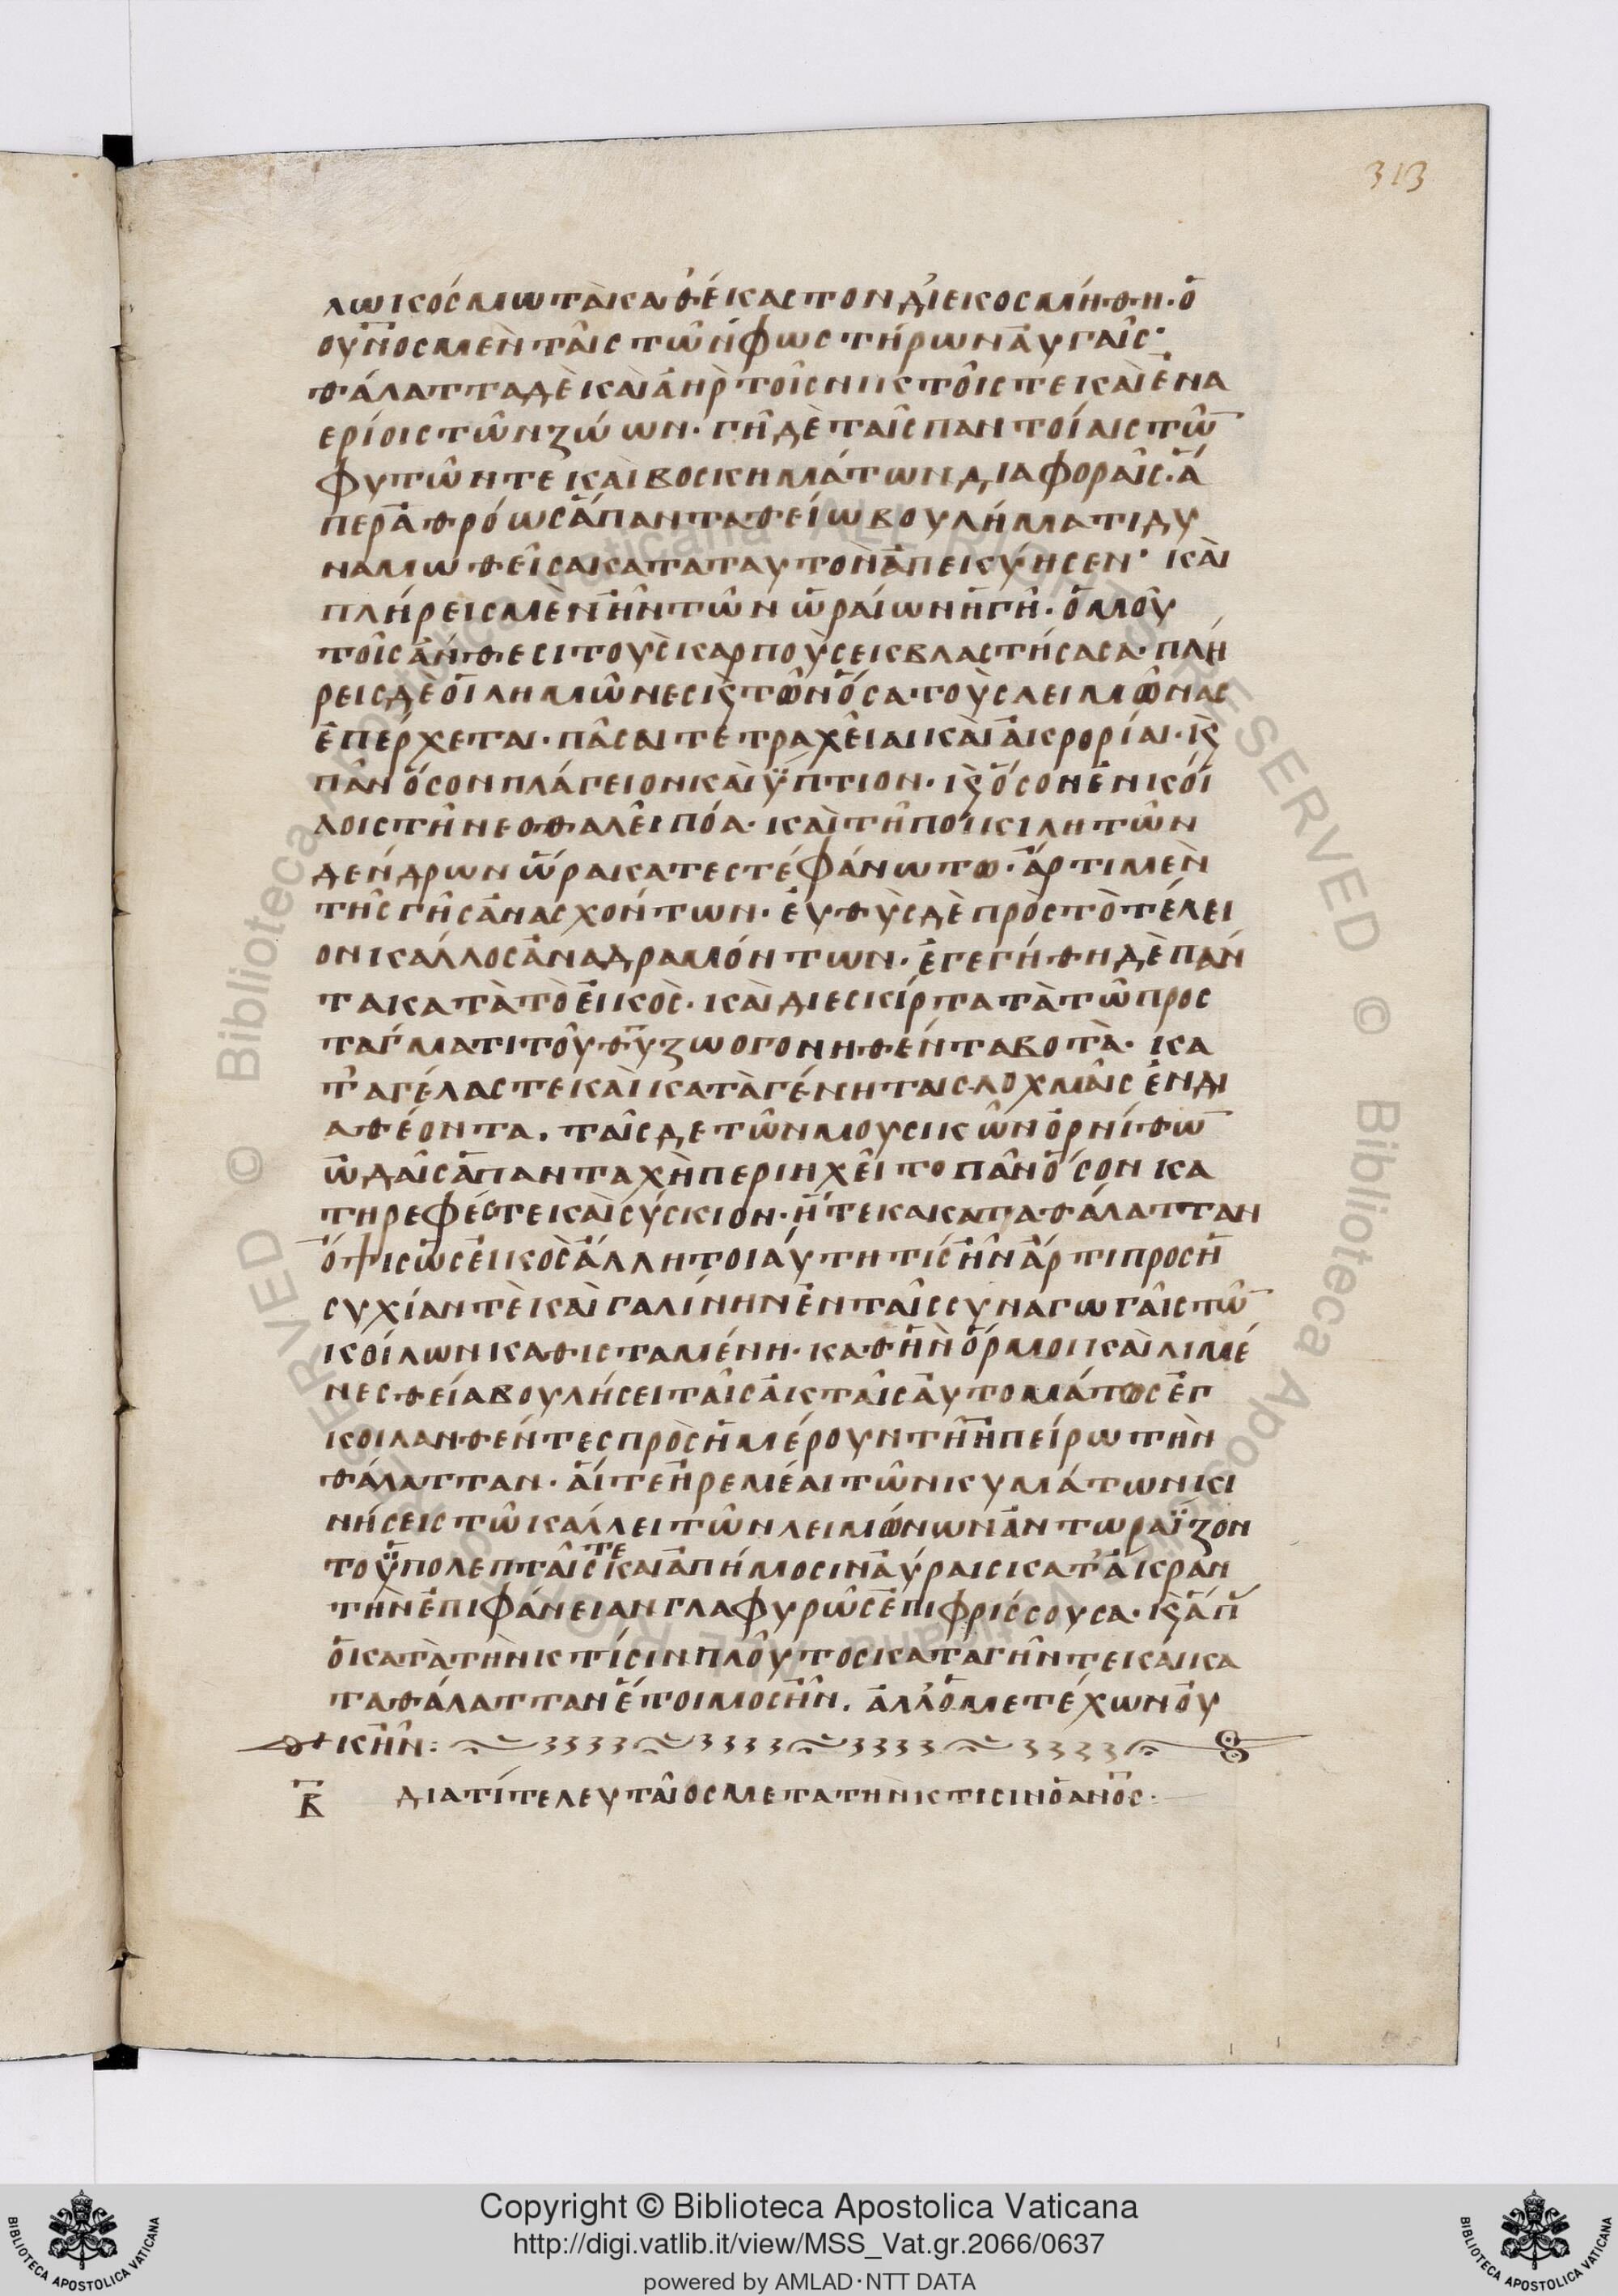 313
λω κόσμω τὰ καθ' ἕκαστον διεκοσμήθη· ὁ
οὐνος μὲν ταῖς τῶν φωστήρων αὐγαῖς·
θάλαττα δὲ καὶ ἀὴρ τοῖς νηκτοῖς τε καὶ ἐνα
ερίοις τῶν ζώων· γῆ δὲ ταῖς παντοίαις τῶ̅
φυτῶν τε καὶ βοσκημάτων διαφοραῖς· ἅ
περ ἀθρόως ἅπαντα θείω βουλήματι δυ
ναμωθεῖσα κατα ταυτον ἀπεκύησεν· καὶ
πλήρεις μὲν ἦν τῶν ὡραίων ἡ γῆ· ὁμοῦ
τοῖς ἄνθεσι τοὺς καρποὺς ἐκβλαστήσασα· πλή
ρεις δὲ οἱ λημῶνες κ̀ τῶν ὅσα τοὺς λειμῶνας
ἐπέρχεται· πᾶσαι τε τραχεῖαι καὶ ἀκρορίαι· κ̀
πᾶν ὅσον πλάγειον καὶ ὕπτιον· κ̀ ὅσον ἐν κοί
λοις τῆ νεοθαλεῖ πόα· καὶ τῆ ποικίλη τῶν
δένδρων ὥρα κατεστέφάνωτο· ἄρτι μὲν
τῆς γῆς ἀνασχόντων· εὐθὺς δὲ πρὸς τὸ τέλει
ον κάλλος ἀναδραμόντων· ἐγεγήθη δὲ πάν
τα κατὰ τὸ εἰκὸς· καὶ διεσκίρτα τὰ τῶ προσ
τάγματι τοῦ θυ ζωογονηθέντα βοτὰ· κα
τ' αγέλας τε καὶ κατὰ γένη ταῖς λοχμαῖς ἐνδι
αθέοντα. ταῖς δε τῶν μουσικῶν ὀρνίθω̅
ὠδαῖς ἁπανταχὴ περιηχεῖτο πᾶν ὅσον κα
τηρεφές τε καὶ σύσκιον· ἥ τε κακατα θάλατταν
ὄψις ὡς εἰκὸς ἄλλη τοιαύτη τίς ἦν ἄρτι προς ἡ
συχίαν τὲ καὶ γαλίνην ἐν ταῖς συναγωγαῖς τῶ̅
κοίλων καθισταμένη· καθ ἣν ὅρμοι καὶ λιμέ
νες θεία βουλήσει ταῖς ἀκταῖς αὐτομάτως ἐγ
κοιλανθέντες προς ἡμέρουν τῆ ἠπείρω τὴν
θάλατταν· αἵ τε ἠρεμέαι τῶν κυμάτων κι
νήσεις τῶ κάλλει τῶν λειμώνων ἀντωραΐζον
το ὑπο λεπταῖς τε καὶ ἀπήμοσιν αὔραις κατ' ἄκραν
τὴν ἐπιφάνειαν γλαφυρῶς ἐπιφρίσσουσα· κ̀ ἅπ
ὁ κατὰ τὴν κτίσιν πλοῦτος κατα γῆν τε καὶ κα
τα θάλατταν ἕτοιμος ἦν. ἀλλ' ὁ μετέχων οὐ
κ ἦν:
κ̅ διατί τελευταῖος μετα τὴν κτισιν ὁ ανος·
Copyright © Biblioteca Apostolica Vaticana
http://digi.vatlib.it/view/MSS_Vat.gr.2066/0637
powered by AMLAD·NTT DATA